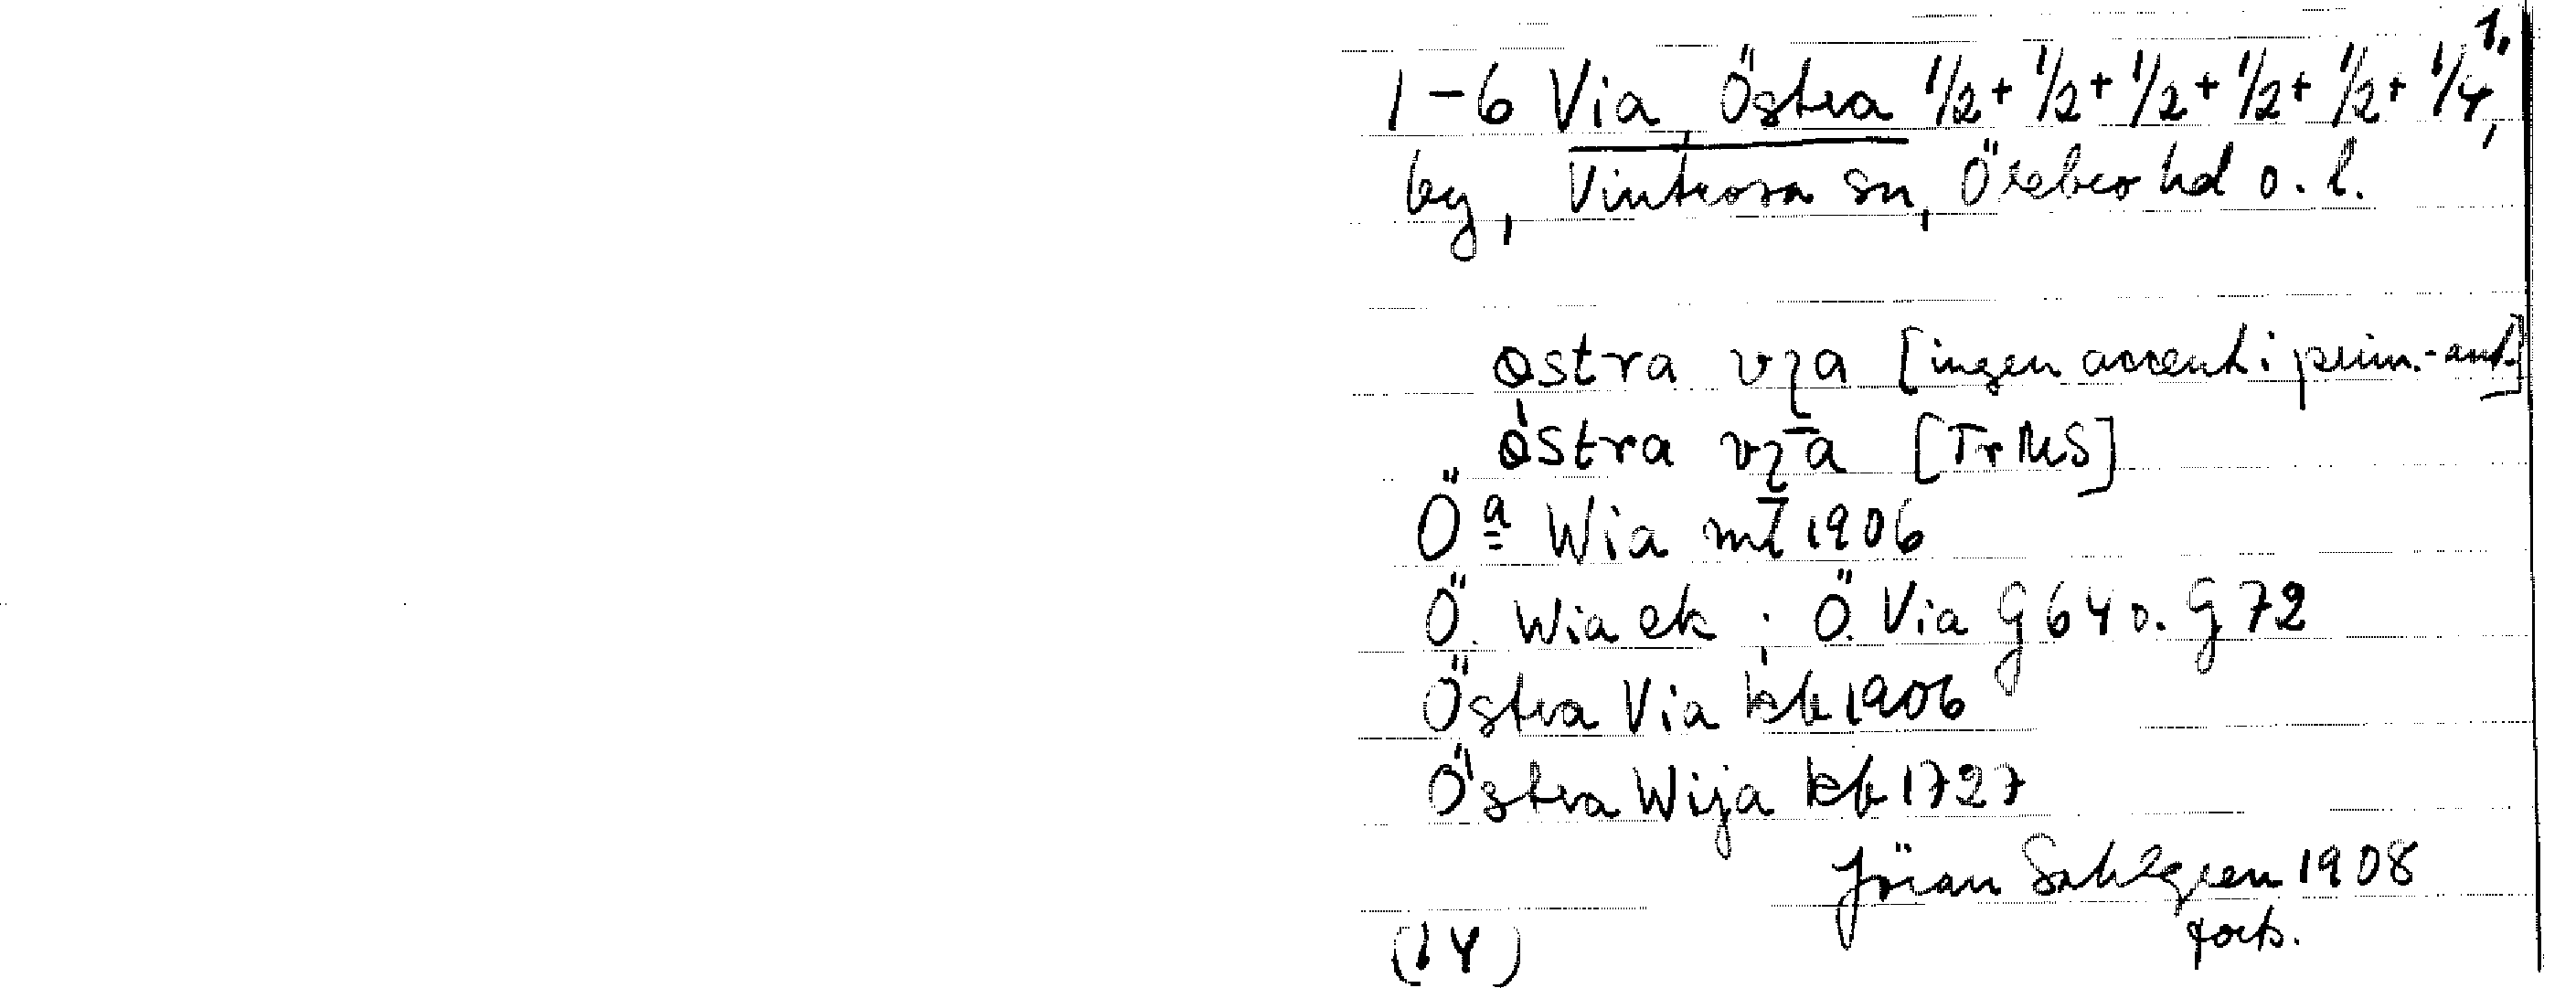 1.
1-6 Via, Östra 1/2 + 1/2 + 1/2 + 1/2 + 1/2 + 1/4,
by, Vintrosa sn, Örebro hd o. l.
østra vɩa [ingen accent i prim.-ant.]
østra vɩa [TrMS]
Öª Wia ml 1906
Ö. Wia ek; Ö. Via G 64 o. G 72
Östra Via kb 1906
Östra Wija kb 1727
Jöran Sahlgren 1908
forts.
(14)